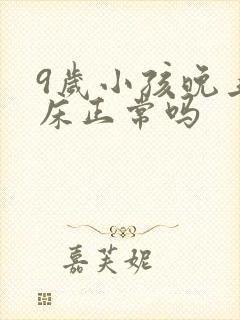 9歲小孩晚上
床正常吗
嘉芙妮